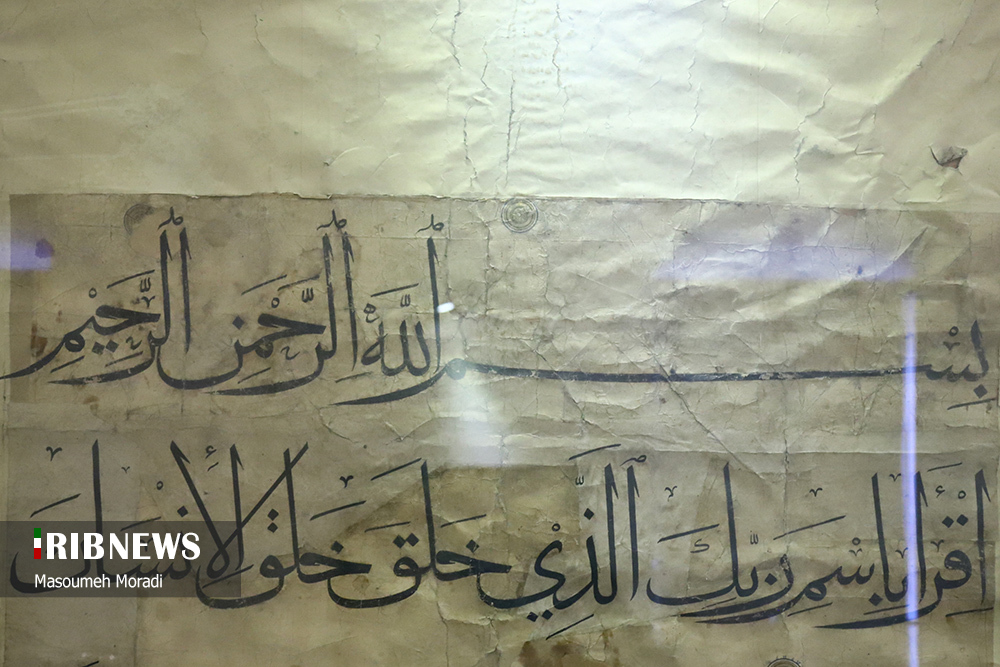 بِسْمِ اللَّهِ الرَّحْمَنِ الرَّحِيْمِ
اِقْرَأْ بِاسْمِ رَبِّكَ الَّذِيْ خَلَقَ خَلَقَ الْأِنْسَانَ
IRIBNEWS
Masoumeh Moradi